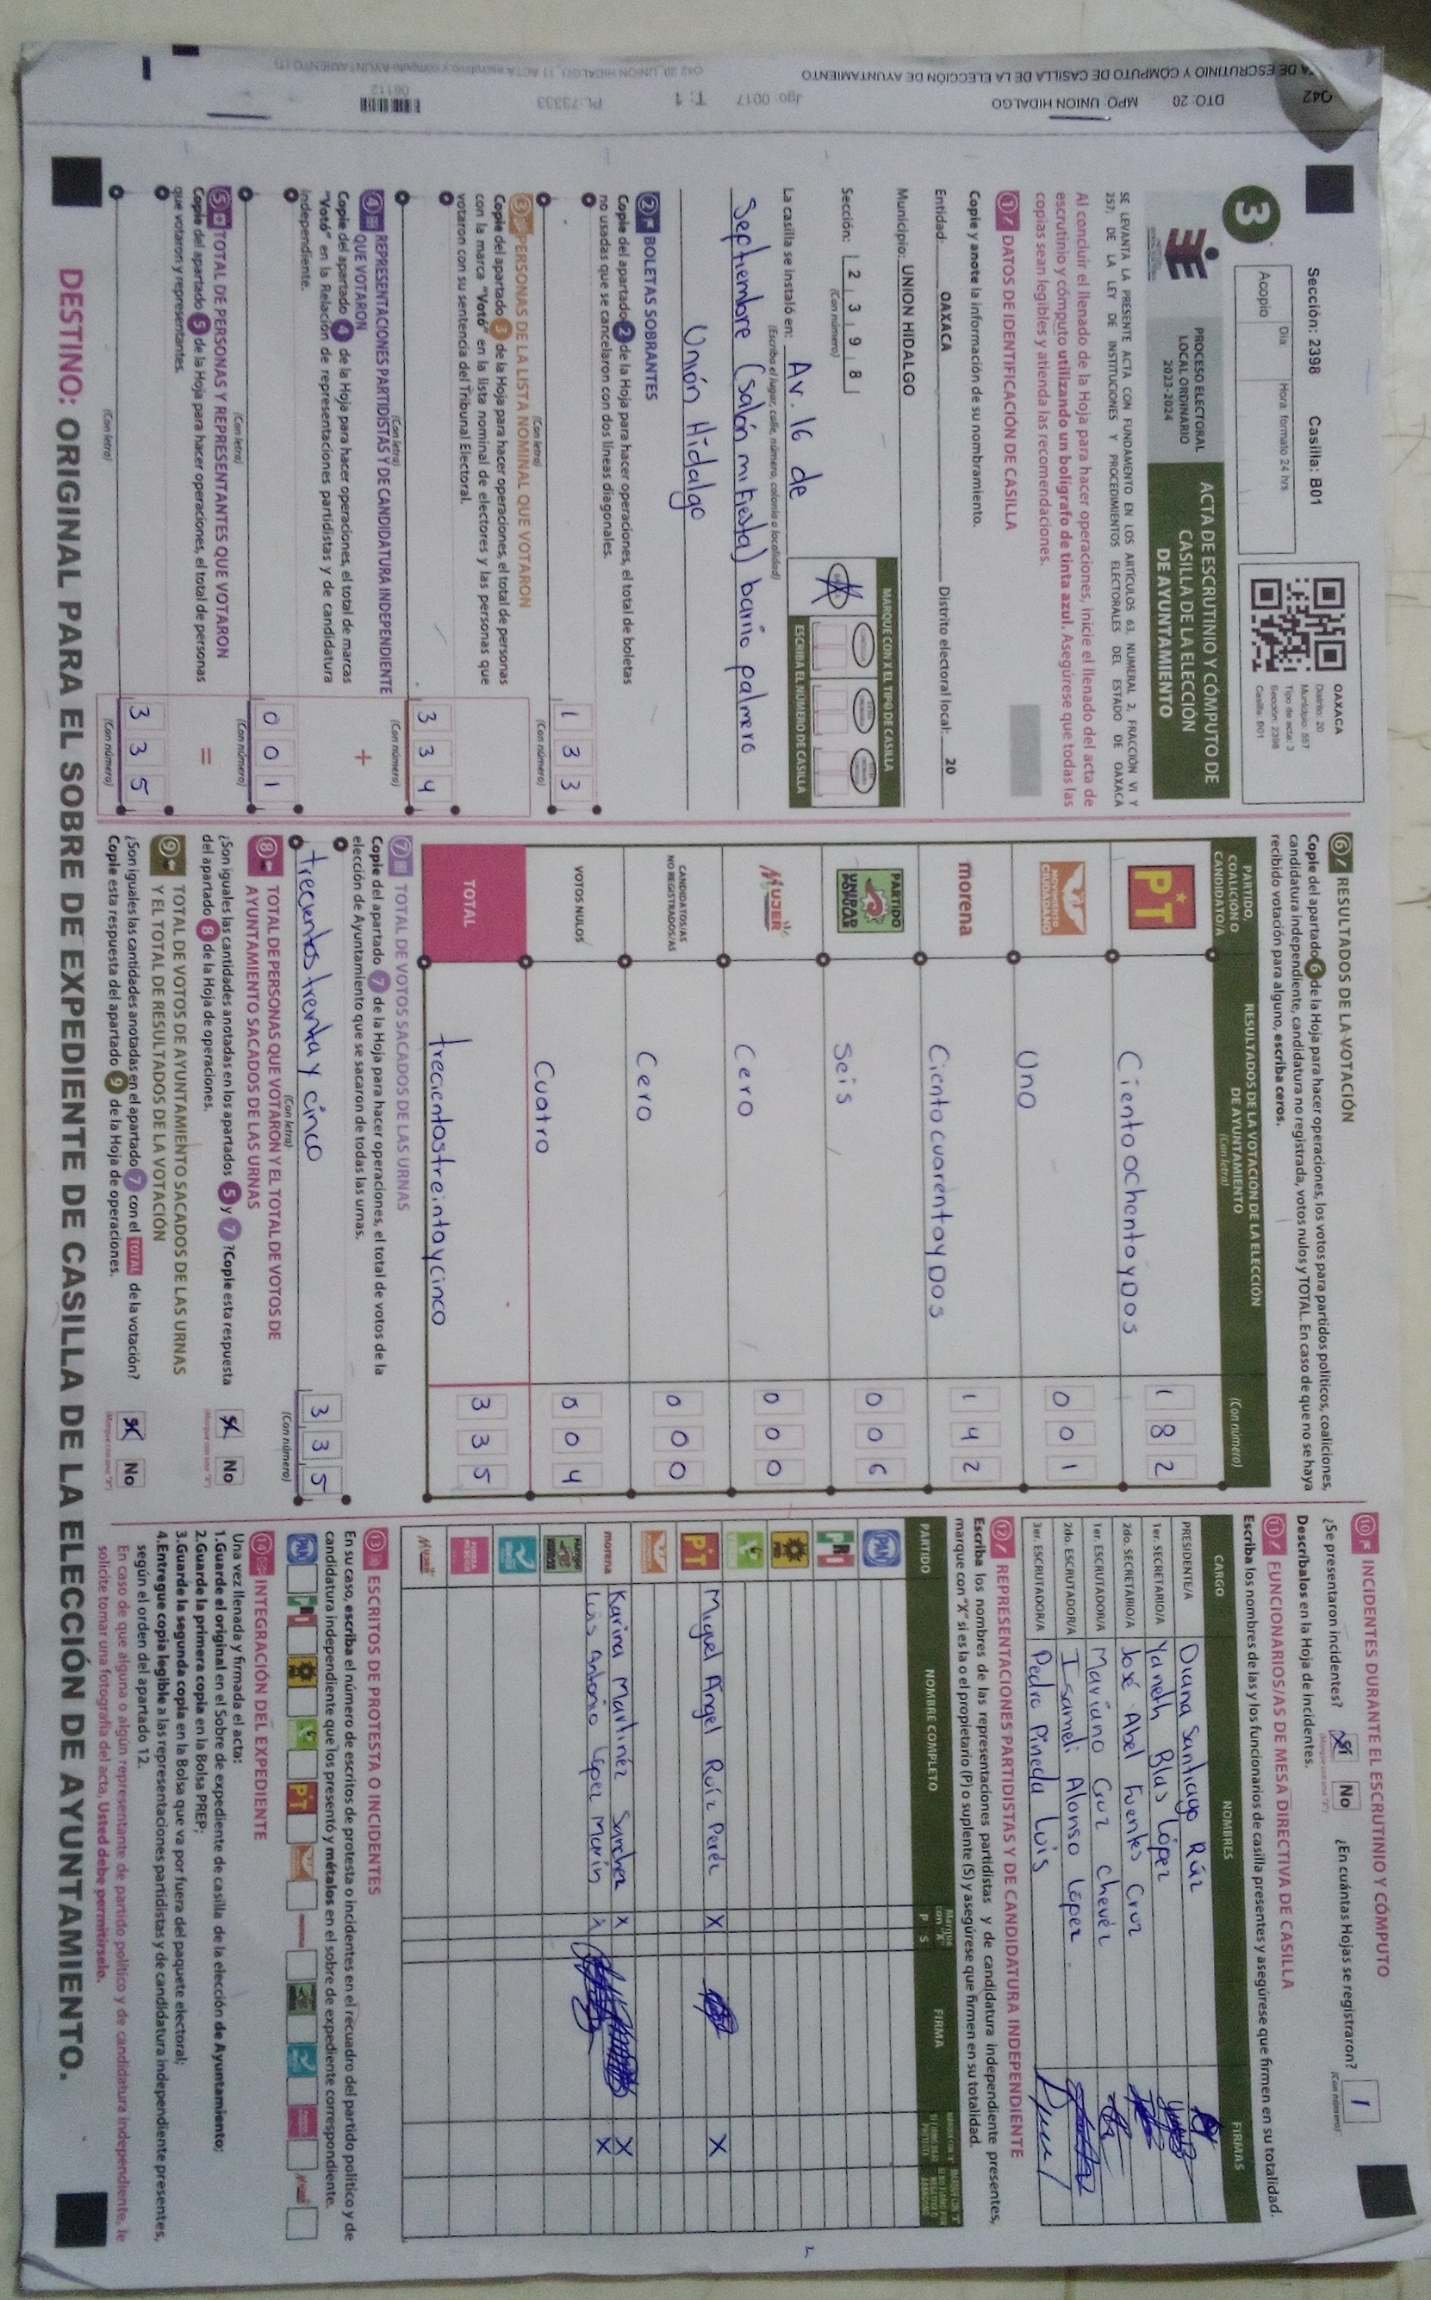 042 DTO: 20 MPO: UNION HIDALGO
ACTA DE ESCRUTINIO Y CÓMPUTO DE CASILLA DE LA ELECCIÓN DE AYUNTAMIENTO
Sección: 2398 Casilla: B01
Día: Hora: formato 24 hrs
Acopio
3
OAXACA
Distrito: 20
Municipio: 557
Tipo de acta: 3
Sección: 2398
Casilla: B01
PROCESO ELECTORAL
LOCAL ORDINARIO
2023-2024
ACTA DE ESCRUTINIO Y CÓMPUTO DE
CASILLA DE LA ELECCIÓN
DE AYUNTAMIENTO
SE LEVANTA LA PRESENTE ACTA CON FUNDAMENTO EN LOS ARTÍCULOS 63, NUMERAL 2, FRACCIÓN VI Y
257, DE LA LEY DE INSTITUCIONES Y PROCEDIMIENTOS ELECTORALES DEL ESTADO DE OAXACA
Al concluir el llenado de la Hoja para hacer operaciones, inicie el llenado del acta de
escrutinio y cómputo utilizando un bolígrafo de tinta azul. Asegúrese que todas las
copias sean legibles y atienda las recomendaciones.
1 DATOS DE IDENTIFICACIÓN DE CASILLA
Copie y anote la información de su nombramiento.
Entidad: OAXACA Distrito electoral local: 20
Municipio: UNION HIDALGO
Sección: 2 3 9 8
(Con número)
MARQUE CON X EL TIPO DE CASILLA
ESCRIBA EL NÚMERO DE CASILLA
La casilla se instaló en: Av. 16 de
(Escriba el lugar, calle, número, colonia o localidad)
Septiembre (Salón mi Fiesta) barrio palmero
Unión Hidalgo
2 BOLETAS SOBRANTES
Copie del apartado 2 de la Hoja para hacer operaciones, el total de boletas
no usadas que se cancelaron con dos líneas diagonales.
1 3 3
(Con letra) (Con número)
3 PERSONAS DE LA LISTA NOMINAL QUE VOTARON
Copie del apartado 3 de la Hoja para hacer operaciones, el total de personas
con la marca "Votó" en la lista nominal de electores y las personas que
votaron con su sentencia del Tribunal Electoral.
3 3 4
(Con letra) (Con número)
4 REPRESENTACIONES PARTIDISTAS Y DE CANDIDATURA INDEPENDIENTE
QUE VOTARON +
Copie del apartado 4 de la Hoja para hacer operaciones, el total de marcas
"Votó" en la Relación de representaciones partidistas y de candidatura
independiente.
0 0 1
(Con letra) (Con número)
5 TOTAL DE PERSONAS Y REPRESENTANTES QUE VOTARON
Copie del apartado 5 de la Hoja para hacer operaciones, el total de personas =
que votaron y representantes.
3 3 5
(Con letra) (Con número)
6 RESULTADOS DE LA VOTACIÓN
Copie del apartado 6 de la Hoja para hacer operaciones, los votos para partidos políticos, coaliciones,
candidatura independiente, candidatura no registrada, votos nulos y TOTAL. En caso de que no se haya
recibido votación para alguno, escriba ceros.
PARTIDO,
COALICIÓN O
CANDIDATO/A
RESULTADOS DE LA VOTACIÓN DE LA ELECCIÓN
DE AYUNTAMIENTO
(Con letra) (Con número)
PT Ciento ochenta y Dos 1 8 2
MOVIMIENTO CIUDADANO Uno 0 0 1
morena Ciento cuarenta y Dos 1 4 2
PARTIDO UNIDAD POPULAR Seis 0 0 6
MUJER Cero 0 0 0
CANDIDATOS/AS
NO REGISTRADOS/AS Cero 0 0 0
VOTOS NULOS Cuatro 0 0 4
TOTAL trecientos treinta y cinco 3 3 5
7 TOTAL DE VOTOS SACADOS DE LAS URNAS
Copie del apartado 7 de la Hoja para hacer operaciones, el total de votos de la
elección de Ayuntamiento que se sacaron de todas las urnas.
trecientos trenta y cinco 3 3 5
(Con letra) (Con número)
8 TOTAL DE PERSONAS QUE VOTARON Y EL TOTAL DE VOTOS DE
AYUNTAMIENTO SACADOS DE LAS URNAS
¿Son iguales las cantidades anotadas en los apartados 5 y 7 ?Copie esta respuesta
del apartado 8 de la Hoja de operaciones.
Sí No
9 TOTAL DE VOTOS DE AYUNTAMIENTO SACADOS DE LAS URNAS
Y EL TOTAL DE RESULTADOS DE LA VOTACIÓN
¿Son iguales las cantidades anotadas en el apartado 7 con el TOTAL de la votación?
Copie esta respuesta del apartado 9 de la Hoja de operaciones.
Sí No
10 INCIDENTES DURANTE EL ESCRUTINIO Y CÓMPUTO
¿Se presentaron incidentes? Sí No ¿En cuántas Hojas se registraron? 1
(Con número)
Descríbalos en la Hoja de Incidentes.
11 FUNCIONARIOS/AS DE MESA DIRECTIVA DE CASILLA
Escriba los nombres de las y los funcionarios de casilla presentes y asegúrese que firmen en su totalidad.
CARGO NOMBRES FIRMAS
PRESIDENTE/A Diana Santiago Ruiz
1er. SECRETARIO/A Yaneth Blas López
2do. SECRETARIO/A José Abel Fuentes Cruz
1er. ESCRUTADOR/A Mariano Cruz Chevéz
2do. ESCRUTADOR/A Isameli Alonso López
3er. ESCRUTADOR/A Pedro Pineda Luis
12 REPRESENTACIONES PARTIDISTAS Y DE CANDIDATURA INDEPENDIENTE
Escriba los nombres de las representaciones partidistas y de candidatura independiente presentes,
marque con "X" si es la o el propietario (P) o suplente (S) y asegúrese que firmen en su totalidad.
PARTIDO NOMBRE COMPLETO Marque con "X" P S FIRMA
PAN
PRI
PRD
VERDE
PT Miguel Ángel Ruíz Peréz X X
morena Karina Martinéz Sanchez X X
Luis Antonio López Marin X X
Mujer
13 ESCRITOS DE PROTESTA O INCIDENTES
En su caso, escriba el número de escritos de protesta o incidentes en el recuadro del partido político y de
candidatura independiente que los presentó y métalos en el sobre de expediente correspondiente.
PAN PRI PT
14 INTEGRACIÓN DEL EXPEDIENTE
Una vez llenada y firmada el acta:
1.Guarde el original en el Sobre de expediente de casilla de la elección de Ayuntamiento;
2.Guarda la primera copia en la Bolsa PREP;
3.Guarda la segunda copia en la Bolsa que va por fuera del paquete electoral;
4.Entregue copia legible a las representaciones partidistas y de candidatura independiente presentes,
según el orden del apartado 12.
En caso de que alguna o algún representante de partido político y de candidatura independiente, le
solicite tomar una fotografía del acta, Usted debe permitírselo.
DESTINO: ORIGINAL PARA EL SOBRE DE EXPEDIENTE DE CASILLA DE LA ELECCIÓN DE AYUNTAMIENTO.